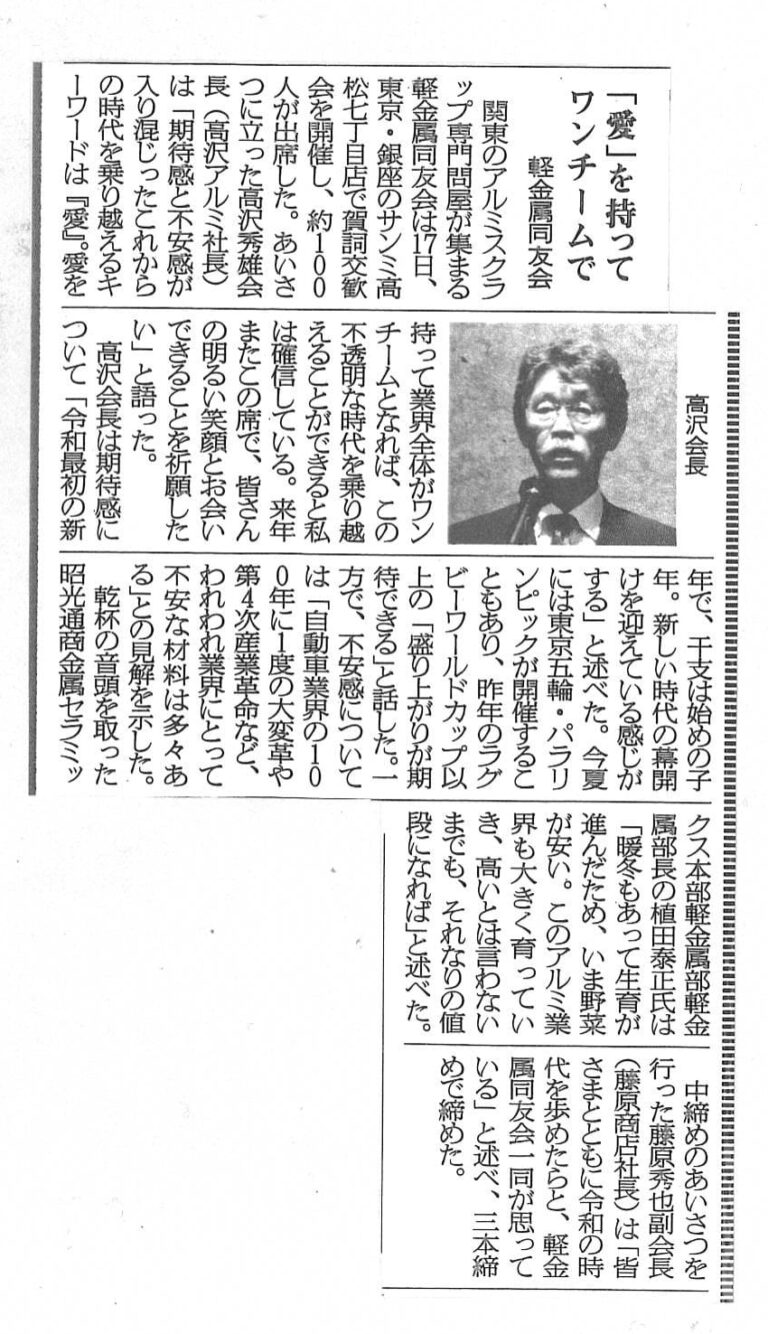 「愛」を持って
ワンチームで
軽金属同友会
関東のアルミスクラ
ップ専門問屋が集まる
軽金属同友会は17日、
東京・銀座のサンミ高
松七丁目店で賀詞交歓
会を開催し、約100
人が出席した。あいさ
つに立った高沢秀雄会
長（高沢アルミ社長）
は「期待感と不安感が
入り混じったこれから
の時代を乗り越えるキ
ーワードは『愛』。愛を
高沢会長
持って業界全体がワン
チームとなれば、この
不透明な時代を乗り越
えることができると私
は確信している。来年
またこの席で、皆さん
の明るい笑顔とお会い
できることを祈願した
い」と語った。
高沢会長は期待感に
ついて「令和最初の新
年で、干支は始めの子
年。新しい時代の幕開
けを迎えている感じが
する」と述べた。今夏
には東京五輪・パラリ
ンピックが開催するこ
ともあり、昨年のラグ
ビーワールドカップ以
上の「盛り上がりが期
待できる」と話した。一
方で、不安感について
は「自動車業界の10
0年に1度の大変革や
第4次産業革命など、
われわれ業界にとって
不安な材料は多々あ
る」との見解を示した。
乾杯の音頭を取った
昭光通商金属セラミッ
クス本部軽金属部軽金
属部長の植田泰正氏は
「暖冬もあって生育が
進んだため、いま野菜
が安い。このアルミ業
界も大きく育ってい
き、高いとは言わない
までも、それなりの値
段になれば」と述べた。
中締めのあいさつを
行った藤原秀也副会長
（藤原商店社長）は「皆
さまとともに令和の時
代を歩めたらと、軽金
属同友会一同が思って
いる」と述べ、三本締
めで締めた。